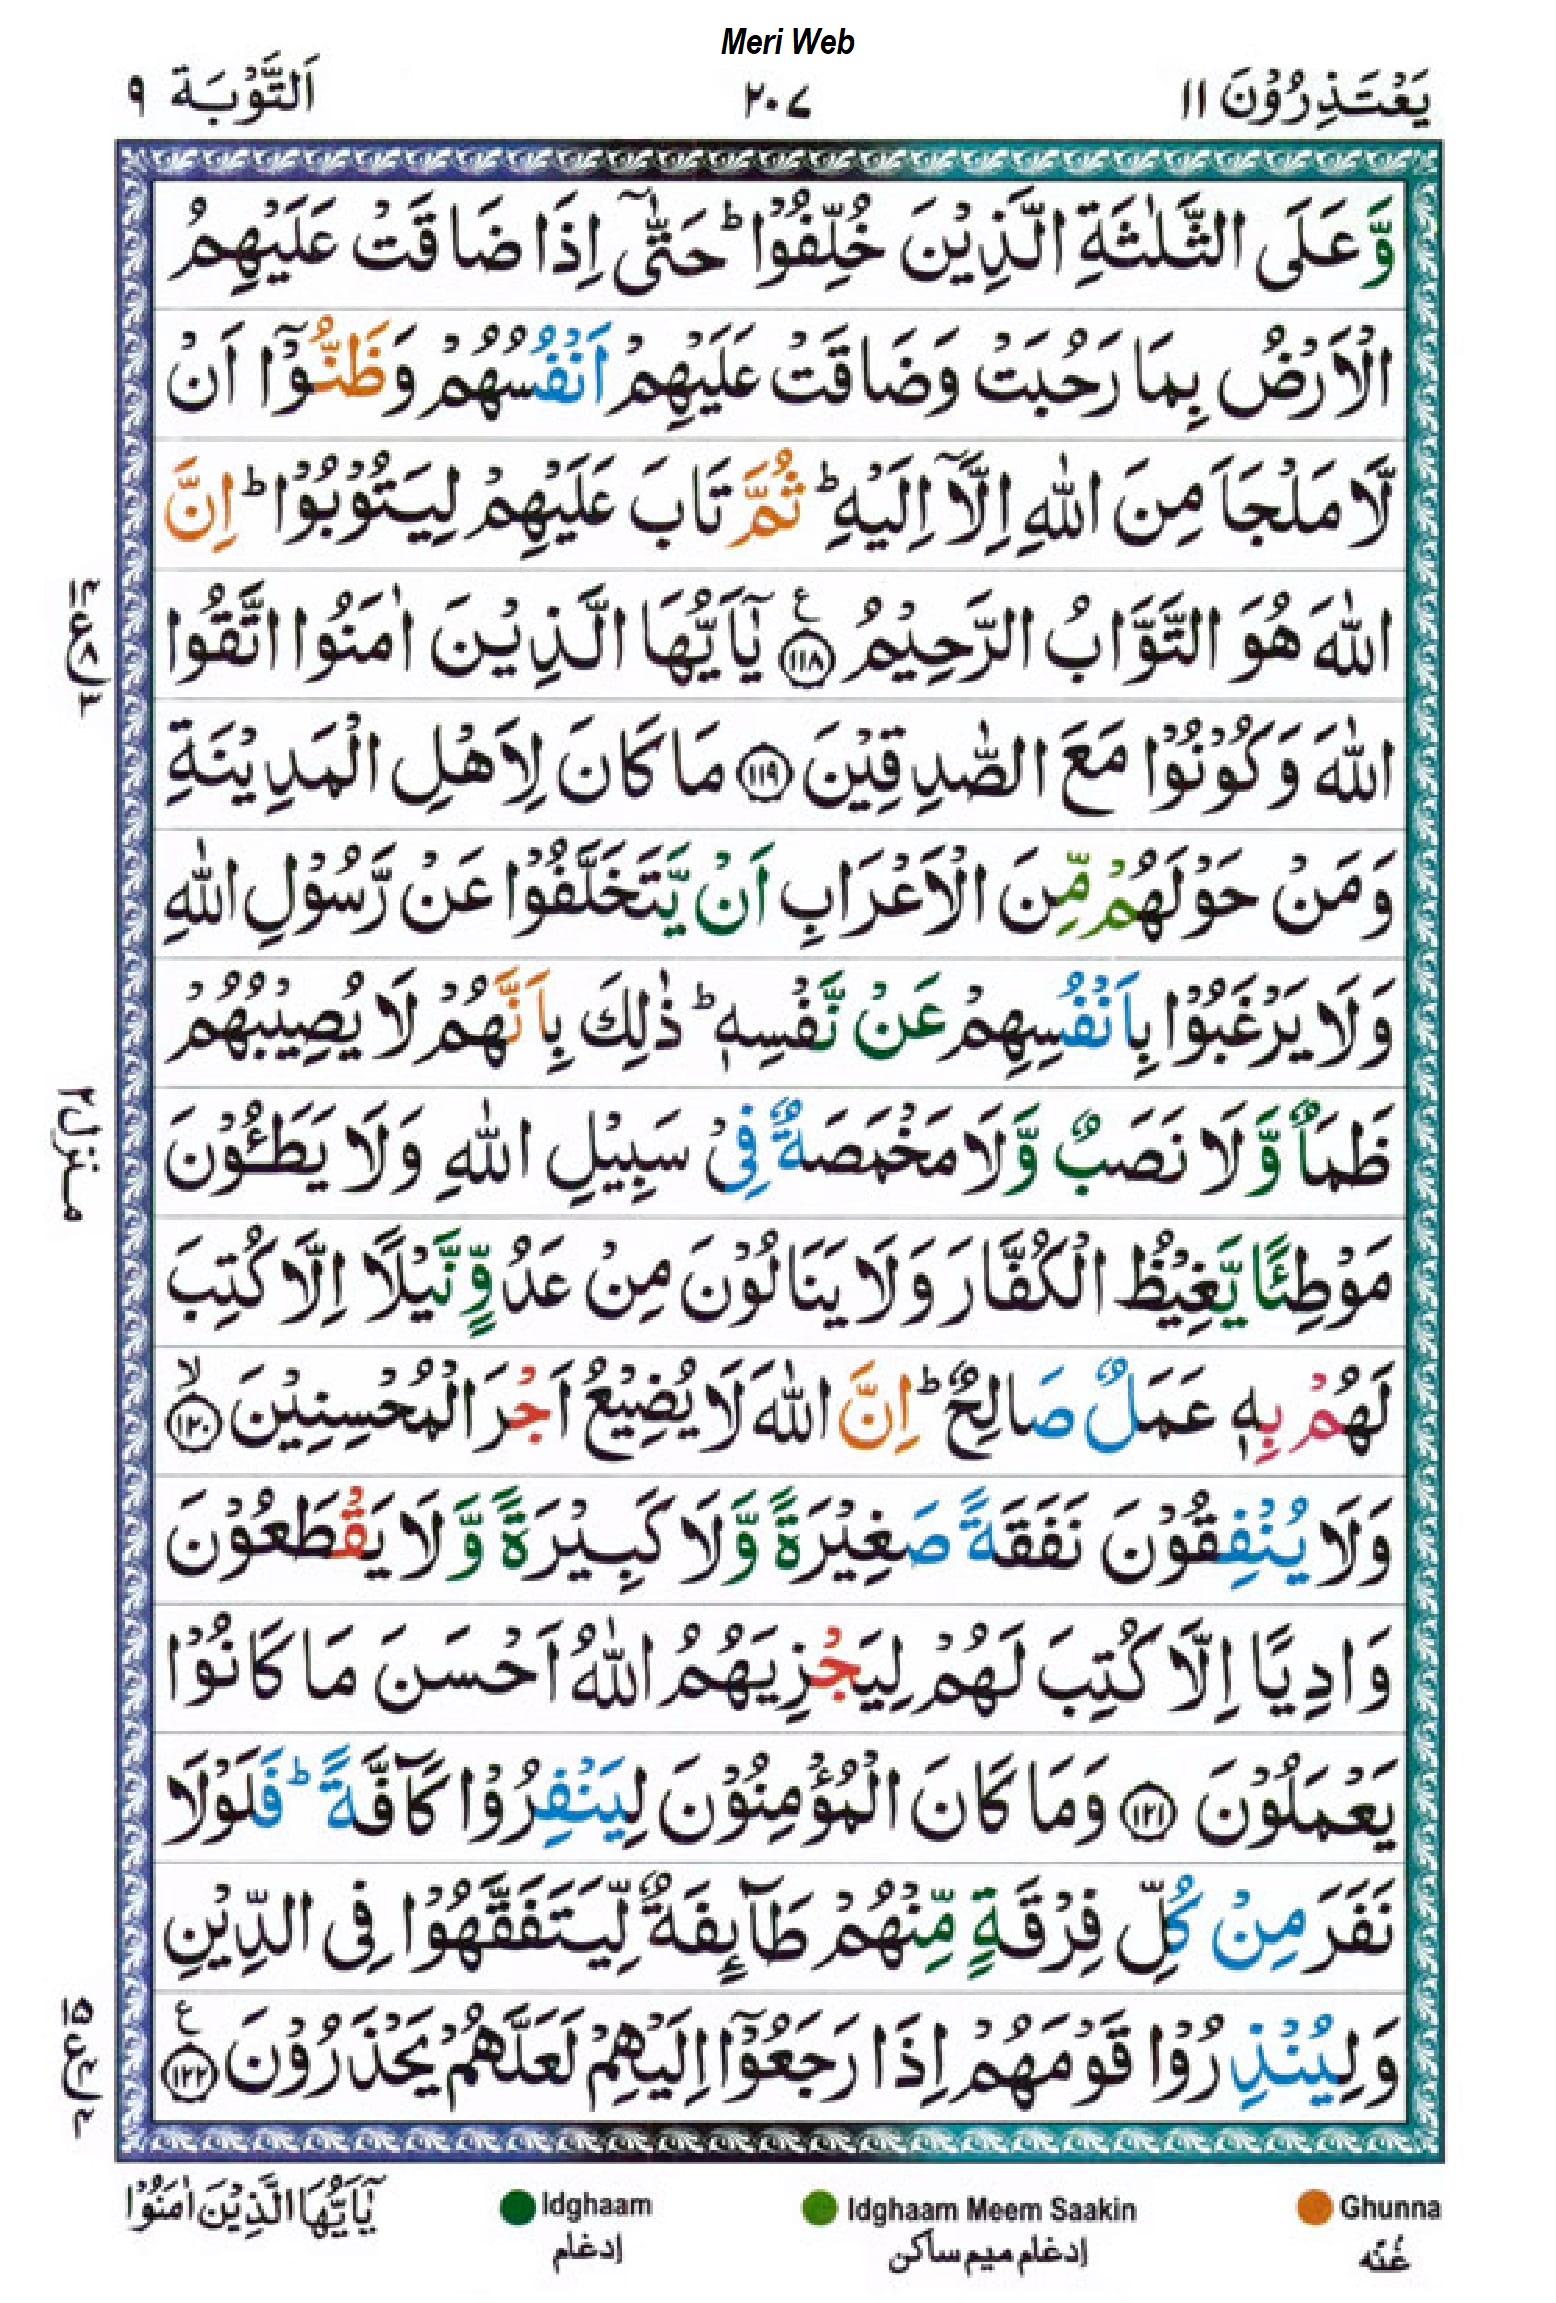 Meri Web
يَعْتَذِرُوْنَ ١١
٢٠٧
اَلتَّوْبَة ٩
وَّعَلَى الثَّلٰثَةِ الَّذِيْنَ خُلِّفُوْا ؕ حَتّٰۤى اِذَا ضَاقَتْ عَلَيْهِمُ
الْاَرْضُ بِمَا رَحُبَتْ وَضَاقَتْ عَلَيْهِمْ اَنْفُسُهُمْ وَظَنُّوْۤا اَنْ
لَّا مَلْجَاَ مِنَ اللّٰهِ اِلَّاۤ اِلَيْهِ ؕ ثُمَّ تَابَ عَلَيْهِمْ لِيَتُوْبُوْا ؕ اِنَّ
اللّٰهَ هُوَ التَّوَّابُ الرَّحِيْمُ ﴿١١٨﴾ ع يٰۤاَيُّهَا الَّذِيْنَ اٰمَنُوا اتَّقُوا
اللّٰهَ وَكُوْنُوْا مَعَ الصّٰدِقِيْنَ ﴿١١٩﴾ مَا كَانَ لِاَهْلِ الْمَدِيْنَةِ
وَمَنْ حَوْلَهُمْ مِّنَ الْاَعْرَابِ اَنْ يَّتَخَلَّفُوْا عَنْ رَّسُوْلِ اللّٰهِ
وَلَا يَرْغَبُوْا بِاَنْفُسِهِمْ عَنْ نَّفْسِهٖ ؕ ذٰلِكَ بِاَنَّهُمْ لَا يُصِيْبُهُمْ
ظَمَاٌ وَّلَا نَصَبٌ وَّلَا مَخْمَصَةٌ فِيْ سَبِيْلِ اللّٰهِ وَلَا يَطَـُٔوْنَ
مَوْطِئًا يَّغِيْظُ الْكُفَّارَ وَلَا يَنَالُوْنَ مِنْ عَدُوٍّ نَّيْلًا اِلَّا كُتِبَ
لَهُمْ بِهٖ عَمَلٌ صَالِحٌ ؕ اِنَّ اللّٰهَ لَا يُضِيْعُ اَجْرَ الْمُحْسِنِيْنَ ﴿١٢٠﴾ ۙ
وَلَا يُنْفِقُوْنَ نَفَقَةً صَغِيْرَةً وَّلَا كَبِيْرَةً وَّلَا يَقْطَعُوْنَ
وَادِيًا اِلَّا كُتِبَ لَهُمْ لِيَجْزِيَهُمُ اللّٰهُ اَحْسَنَ مَا كَانُوْا
يَعْمَلُوْنَ ﴿١٢١﴾ وَمَا كَانَ الْمُؤْمِنُوْنَ لِيَنْفِرُوْا كَآفَّةً ؕ فَلَوْلَا
نَفَرَ مِنْ كُلِّ فِرْقَةٍ مِّنْهُمْ طَآىِٕفَةٌ لِّيَتَفَقَّهُوْا فِى الدِّيْنِ
وَلِيُنْذِرُوْا قَوْمَهُمْ اِذَا رَجَعُوْۤا اِلَيْهِمْ لَعَلَّهُمْ يَحْذَرُوْنَ ﴿١٢٢﴾ ع
منزل ٢
يٰۤاَيُّهَا الَّذِيْنَ اٰمَنُوْا
Idghaam
إدغام
Idghaam Meem Saakin
إدغام ميم ساكن
Ghunna
غُنّه